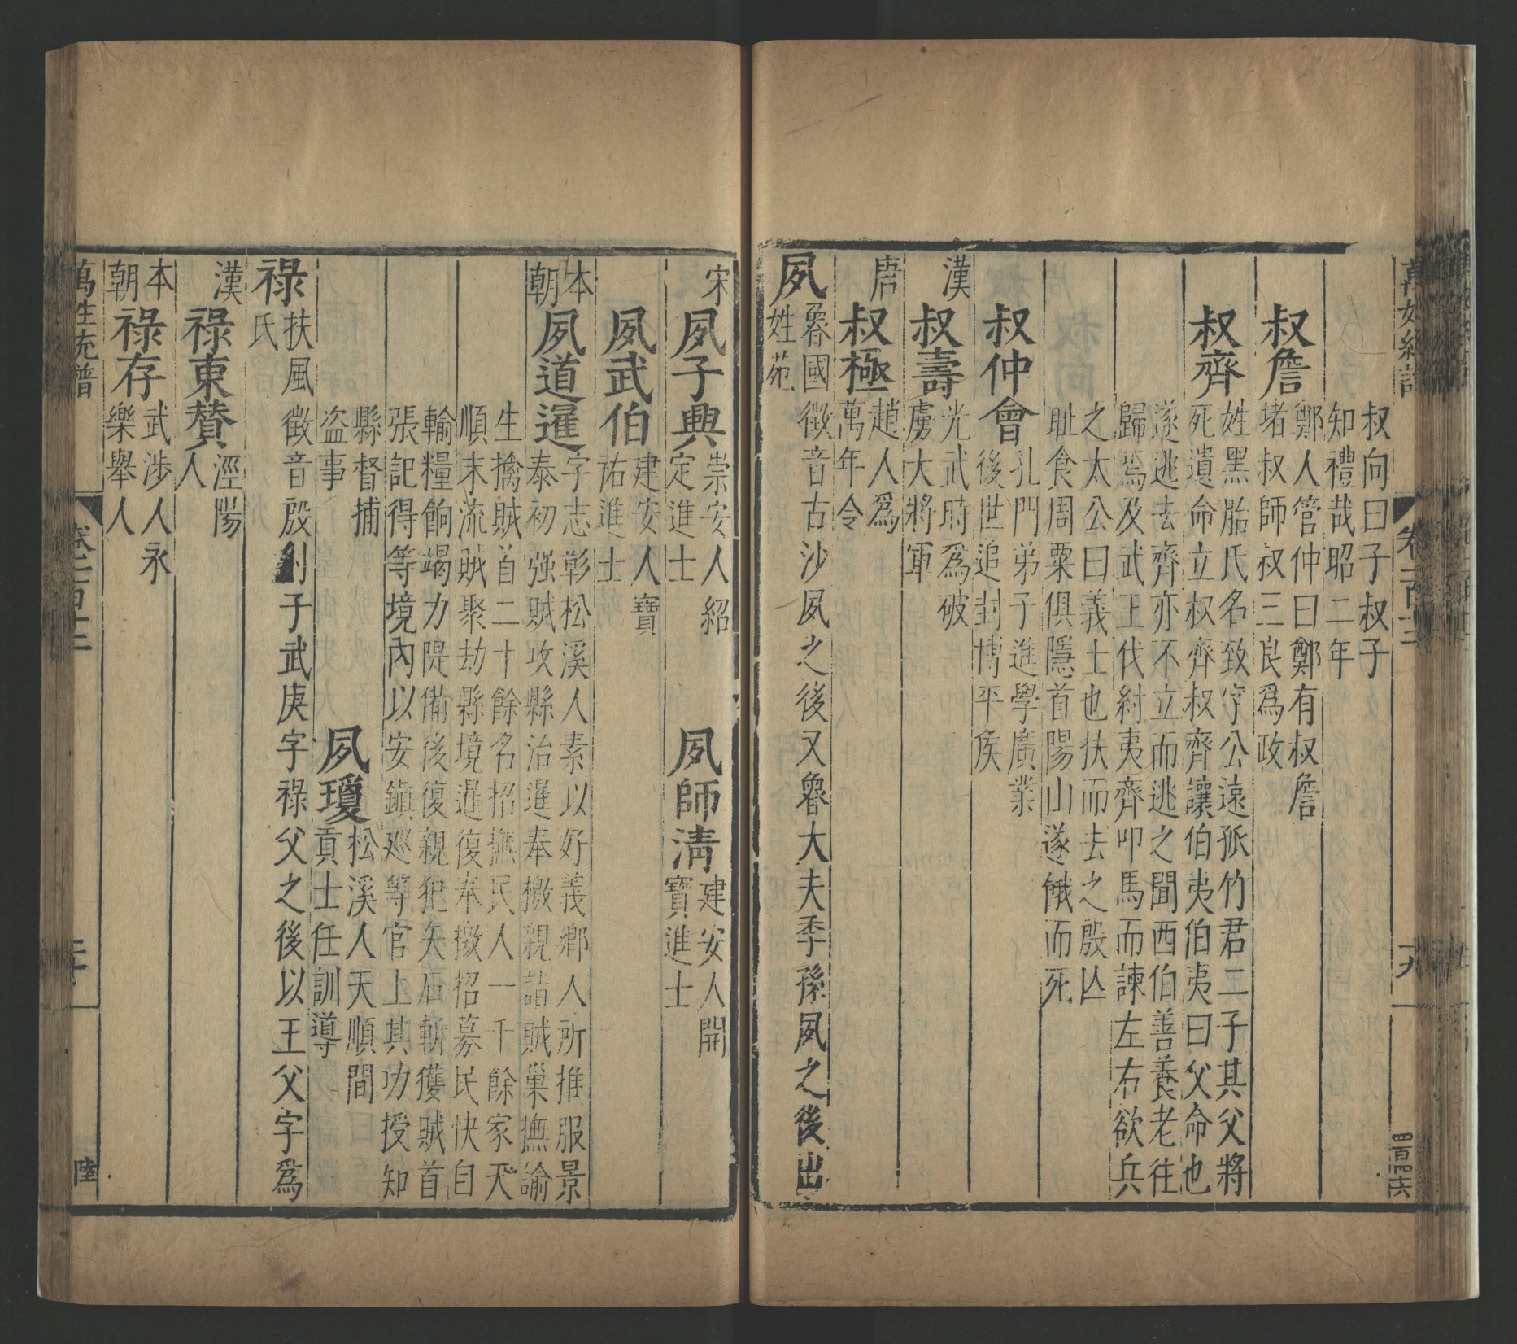 叔向曰子叔子
知禮哉昭二年
叔詹
鄭人管仲曰鄭有叔詹
堵叔師叔三良爲政
叔齊
姓黑胎氏名致字公遠孤竹君二子其父將
死遺命立叔齊叔齊讓伯夷伯夷曰父命也
遂逃去齊亦不立而逃之聞西伯善養老往
歸焉及武王伐紂夷齊叩馬而諫左右欲兵
之太公曰義士也扶而去之殷亾
耻食周粟俱隱首陽山遂餓而死
叔仲會
孔門弟子進學廣業
後世追封博平侯
漢
叔壽
光武時爲破
虜大將軍
唐
叔極
趙人爲
萬年令
夙
魯國
姓苑
徵音古沙夙之後又魯大夫季孫夙之後出
宋
夙子興
崇安人紹
定進士
夙師淸
建安人開
寶進士
夙武伯
建安人寶
祐進士
本朝
夙道暹
字志彰松溪人素以好義鄕人所推服景
泰初强賊攻縣治暹奉檄親詣賊巢撫諭
生擒賊首二十餘名招撫民人一千餘家天
順末流賊聚劫縣境暹復奉檄招募民快自
輸糧餉竭力隄備後復親犯矢石斬獲賊首
張記得等境內以安鎭廵等官上其功授知
縣督捕
盗事
夙瓊
松溪人天順間
貢士任訓導
祿
扶風
氏
徵音殷紂子武庚字祿父之後以王父字爲
漢
祿東贊
涇陽
人
本朝
祿存
武涉人永
樂舉人
萬姓統譜
卷一百十二
二十
陸